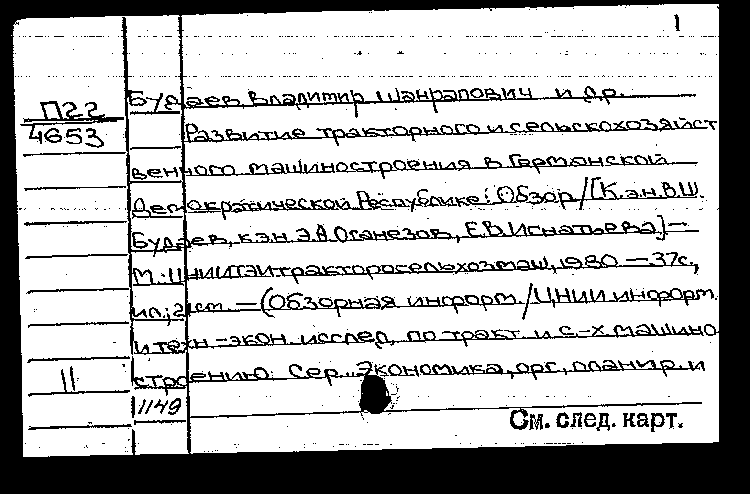 1
П22
4653
Будаев Владимир Шанрапович и др.
Развитие тракторного и сельскохозяйст
венного машиностроения в Германской
Демократической Республике: Обзор/[К.э.н. В.Ш.
Будаев, к.э.н. Э.А. Оганезов, Е.В. Игнатьева] —
М.: ЦНИИТЭИтракторосельхозмаш, 1980 — 37с.,
ил.; 21см. — (Обзорная информ./ЦНИИ информ.
и техн.-экон. исслед. по тракт. и с.-х. машино
строению. Сер. "Экономика, орг., планир. и
11
1149
См. след. карт.